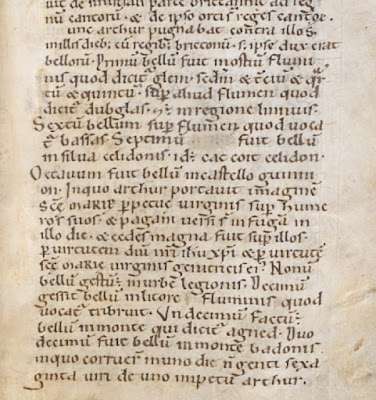 parte brittanniæ ad reg
nū cantorū. & de ipso orti reges cantoꝝ.
unc arthur pugnabat contra illos
in illis dieb; cū regib; brittonū. s; ipse dux erat
bellorū. Primū bellū fuit in ostiū flumi
nis quod dicit̄ glein. scd̄m & t̄ciū & qͣr
tū & quintū. sup̄ aliud flumen quod
dicit̄ dubglas. & ē in regione linnuis.
Sextū bellum sup̄ flumen quod uoca
t̄ bassas. Septimū fuit bellū
in silua celidonis. id ē cat coit celidon.
Octauum fuit bellū in castello guinni
on. In quo arthur portauit imaginē
scē mariæ p̄petuæ uirginis sup̄ hume
ros suos. & pagani uersi s̄ in fugā in
illo die. & cedes magna fuit sup̄ illos.
p̄ uirtutem dn̄i nr̄i ih̄u xp̄i & p̄ uirtutē
scē mariæ uirginis genitricis ei'. Nonū
bellū gestū ē in urbe legionis. Decimū
gessit bellū in litore fluminis quod
uocat̄ tribruit. Undecimū factū ē
bellū in monte qui dicit̄ agned. Duo
decimū fuit bellū in monte badonis.
in quo corruer̄ in uno die n̄genti sexa
ginta uiri de uno impetu arthur.